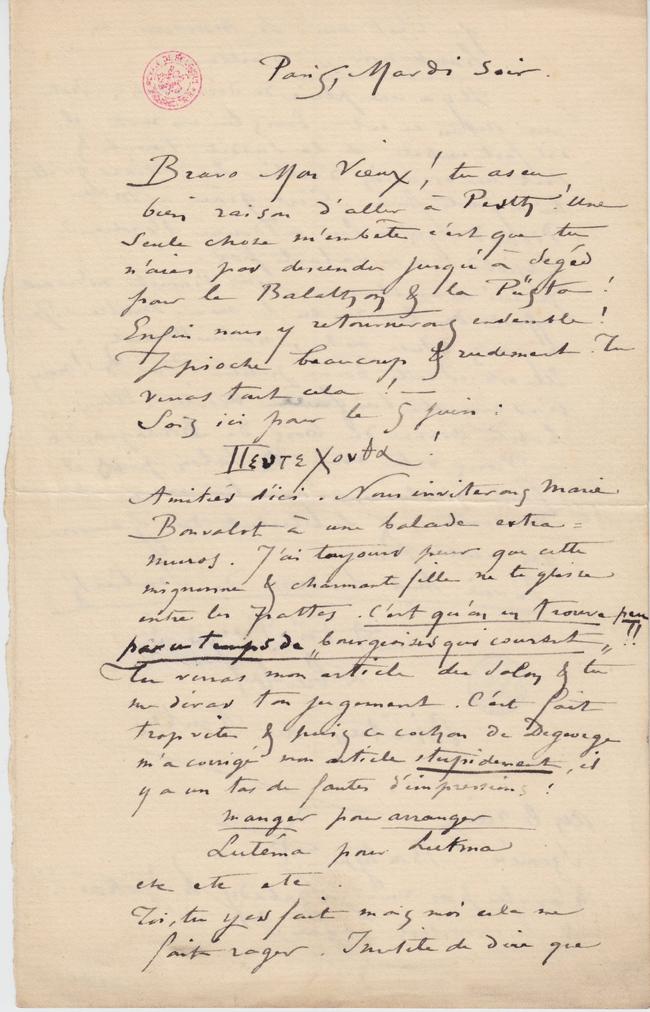 Paris, Mardi Soir.
Bravo Mon Vieux ! tu as eu
bien raison d'aller à Pesth ! Une
seule chose m'embête c'est que tu
n'aies pas descendu jusqu'à Segéd
pour le Balathon & la Püszta !
Enfin nous y retournerons ensemble !
Je pioche beaucoup & rudement. Tu
verras tout cela ! —
Sois ici pour le 5 juin :
Πεντεχουθα !
Amitiés d'ici. Nous inviterons Marie
Bonvalot à une balade extra =
muros. J'ai toujours peur que cette
mignonne & charmante fille ne te glisse
entre les pattes. C'est qu'on en trouve peu
par ce temps de „bourgeoises qui courent„ !!
Tu verras mon article du Salon & tu
me diras ton jugement. C'est fait
trop vite & puis ce cochon de Degeorge
m'a corrigé mon article stupidement, il
y a un tas de fautes d'impressions !
manger pour arranger
Lutéma pour Lukma
etc etc etc.
Toi, tu y es fait mais moi cela me
fait rager. Inutile de dire que